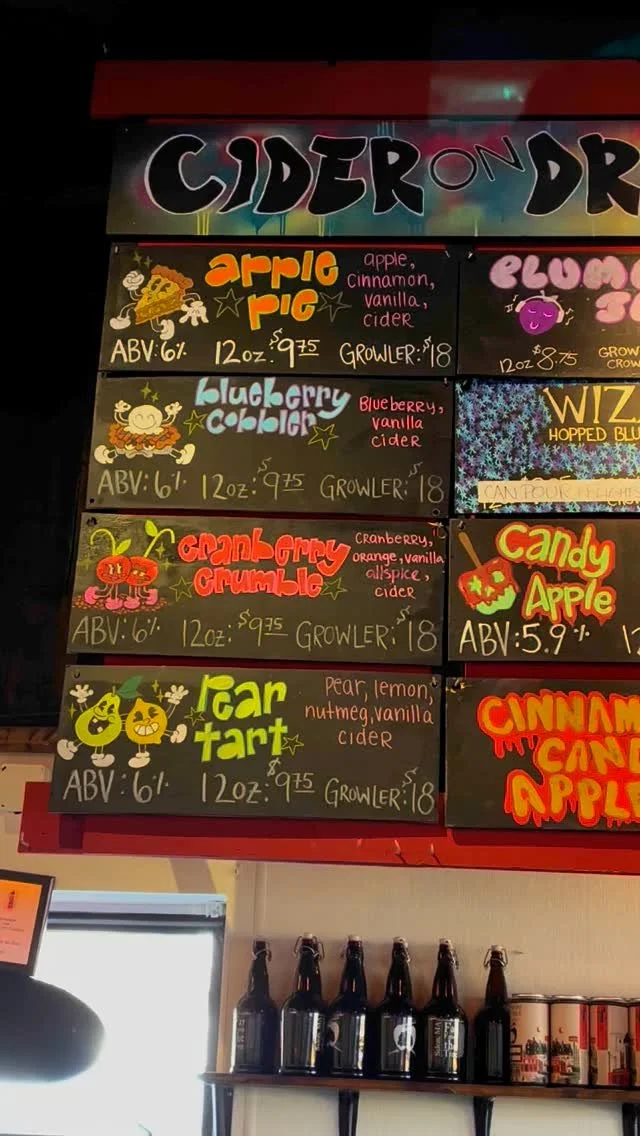 CIDER ON DR
apple
pie
apple,
cinnamon,
vanilla,
cider
ABV: 6% 12oz: $9.75 GROWLER: $18
blueberry
cobbler
Blueberry,
vanilla
cider
ABV: 6% 12oz: $9.75 GROWLER: $18
cranberry
crumble
cranberry,
orange, vanilla
allspice,
cider
ABV: 6% 12oz: $9.75 GROWLER: $18
Pear
tart
Pear, lemon,
nutmeg, vanilla
cider
ABV: 6% 12oz: $9.75 GROWLER: $18
PLUM
12oz $8.75 GROW
CROW
WIZ
HOPPED BLU
CAN POUR
Candy
Apple
ABV: 5.9% 12
CINNAM
CAND
APPLE
Salem, MA